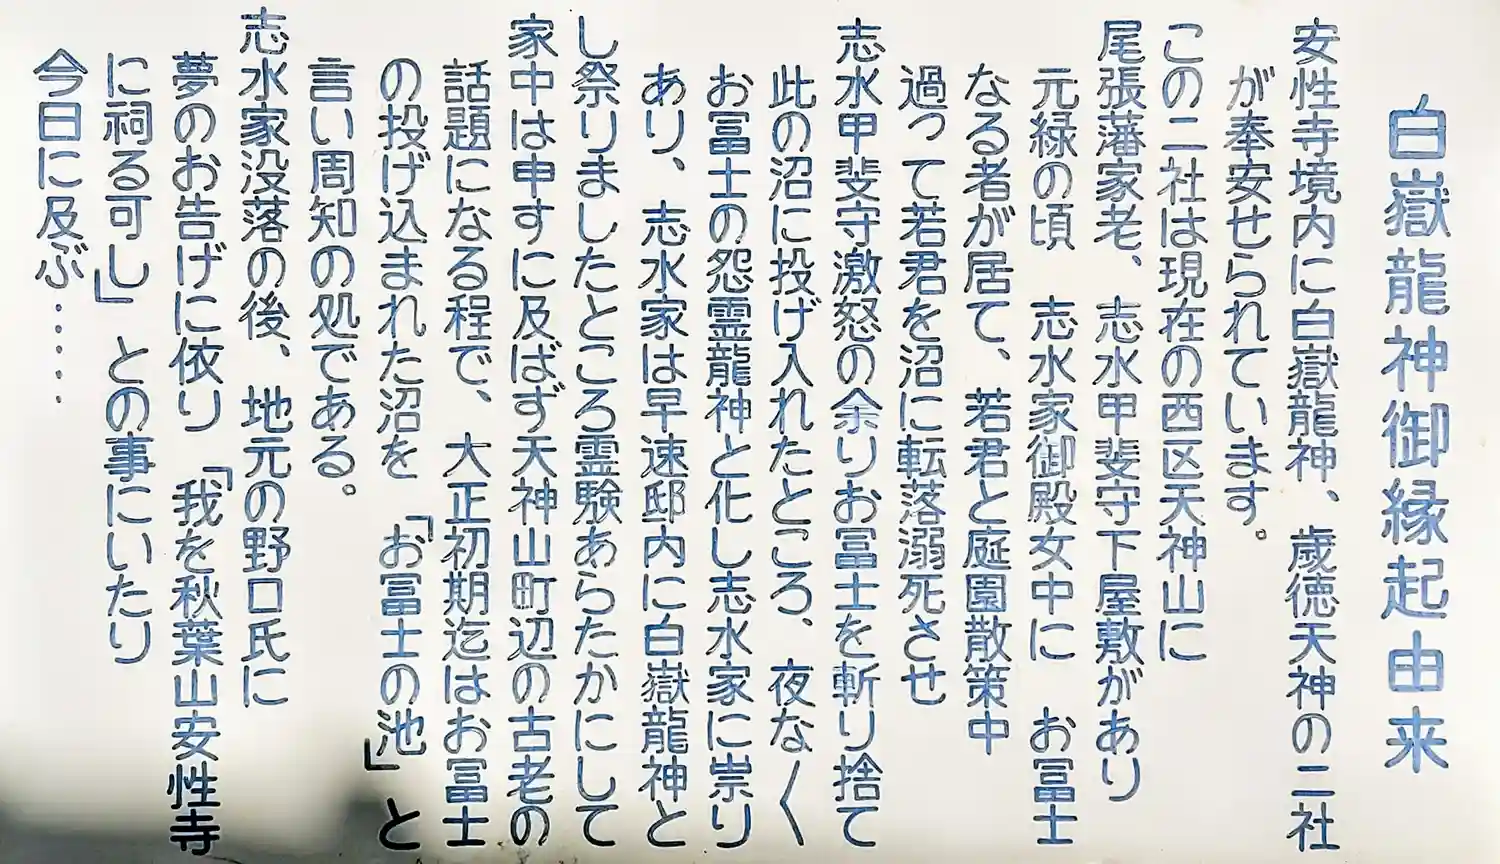 白嶽龍神御縁起由来
安性寺境内に白嶽龍神、歳徳天神の二社
が奉安せられています。
この二社は現在の西区天神山に
尾張藩家老、志水甲斐守下屋敷があり
元緑の頃　志水家御殿女中に　お冨士
なる者が居て、若君と庭園散策中
過って若君を沼に転落溺死させ
志水甲斐守激怒の余りお冨士を斬り捨て
此の沼に投げ入れたところ、夜な〱
お冨士の怨霊龍神と化し志水家に祟り
あり、志水家は早速邸内に白嶽龍神と
し祭りましたところ霊験あらたかにして
家中は申すに及ばず天神山町辺の古老の
話題になる程で、大正初期迄はお冨士
の投げ込まれた沼を「お冨士の池」と
言い周知の処である。
志水家没落の後、地元の野口氏に
夢のお告げに依り「我を秋葉山安性寺
に祠る可し」との事にいたり
今日に及ぶ……